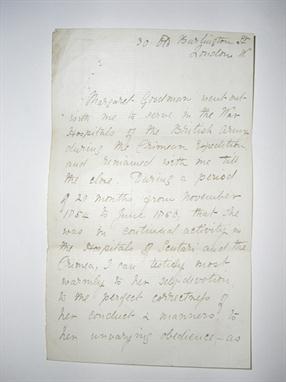 30 Old Burlington St
London W
Margaret Goodman went out
with me to serve in the War
Hospitals of the British Army
during the Crimean Expedition
and remained with me till
the close. During a period
of 20 months from November
1854 to June 1856, that she
was in continual activity in
the Hospitals of Scutari and the
Crimea, I can testify most
warmly to her self-devotion,
to the perfect correctness of
her conduct & manners, to
her unvarying obedience – as